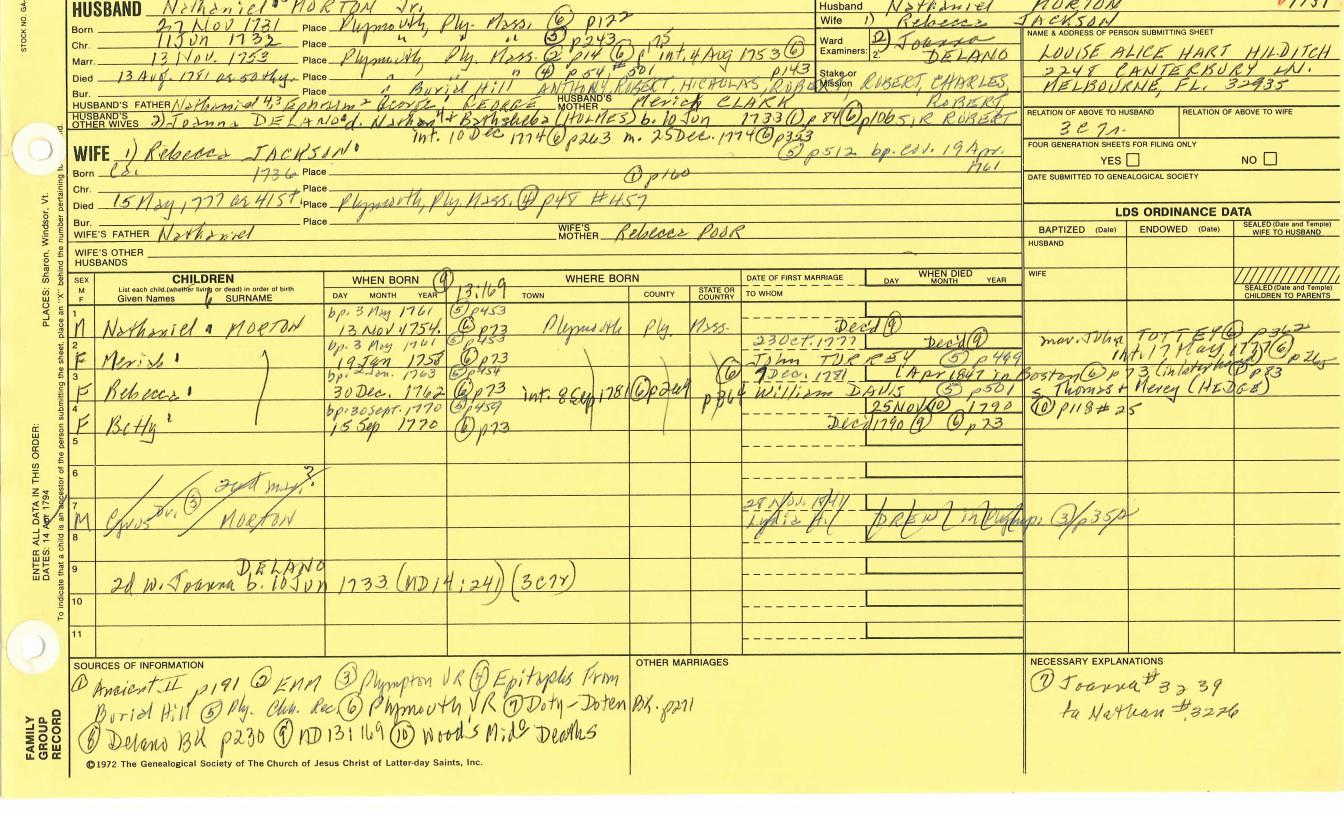 HUSBAND Nathaniel MORTON Jr.
Husband Nathaniel MORTON
Wife 1) Rebecca JACKSON
Born 27 Nov 1731 Place Plymouth, Ply. Mass. ⑥ p122
Chr. 11 Jun 1732 Place " " " ⑤ p243
Marr. 13 Nov. 1753 Place Plymouth, Ply. Mass. ② p14 ⑥ int. 4 Aug 1753 ⑥ p143
Died 13 Aug. 1781 Place " " " ④ p54 # 501
Bur. Place " Burial Hill ANTHONY, ROBERT, NICHOLAS, ROBERT, ROBERT, CHARLES, ROBERT,
Ward Examiners: 2) Joanna DELANO
Stake or Mission
HUSBAND'S FATHER Nathaniel 4,3 Ephraim 2 George 1 GEORGE HUSBAND'S MOTHER Meriah CLARK
HUSBAND'S OTHER WIVES 2) Joanna DELANO d. Nathan 4 + Bathsheba (HOLMES) b. 10 Jun 1733 ① p84 ⑥ p106 SIR ROBERT
int. 10 Dec 1774 ⑥ p263 m. 25 Dec. 1774 ⑥ p353
WIFE 1) Rebecca JACKSON
⑤ p512 bp. cov. 19 Apr. 1761
Born Ca. 1736 Place ① p160
Chr. Place
Died 15 May, 1777 ae 41st Place Plymouth, Ply Mass. ④ p48 #457
Bur. Place
WIFE'S FATHER Nathaniel WIFE'S MOTHER Rebecca POOR
WIFE'S OTHER HUSBANDS
NAME & ADDRESS OF PERSON SUBMITTING SHEET
LOUISE ALICE HART HILDITCH
2248 CANTERBURY LN.
MELBOURNE, FL. 32935
RELATION OF ABOVE TO HUSBAND RELATION OF ABOVE TO WIFE
3c7r.
FOUR GENERATION SHEETS FOR FILING ONLY
YES NO
DATE SUBMITTED TO GENEALOGICAL SOCIETY
LDS ORDINANCE DATA
BAPTIZED (Date) ENDOWED (Date) SEALED (Date and Temple) WIFE TO HUSBAND
HUSBAND
WIFE
SEALED (Date and Temple) CHILDREN TO PARENTS
SEX M F CHILDREN WHEN BORN ⑨ 13:169 WHERE BORN DATE OF FIRST MARRIAGE WHEN DIED
List each child (whether living or dead) in order of birth
Given Names SURNAME DAY MONTH YEAR TOWN COUNTY STATE OR COUNTRY TO WHOM DAY MONTH YEAR
1 bp. 3 May 1761 ⑤ p453
M Nathaniel MORTON 13 Nov 1754. ⑥ p73 Plymouth Ply. Mass. Dec'd ⑨
2 bp. 3 May 1761 ⑤ p453 23 Oct. 1777 Dec'd ⑨ mar. John TOTTEY ⑥ p362
F Meriah 19 Jan 1758 ⑥ p73 John TORREY ⑤ p499 int. 17 May, 1777 ⑥ p265
3 bp. 2 Jan. 1763 ⑤ p454 ⑥ 9 Dec. 1781 1 Apr 1847 in Boston ⑥ p73 p83
F Rebecca 30 Dec. 1762 ⑥ p73 int. 8 Sep 1781 ⑥ p269 p364 William DAVIS ⑤ p501 s. Thomas + Mercy (HEDGE)
4 bp. 30 Sept. 1770 ⑤ p459 25 Nov ⑩ 1790 ⑩ p118 # 25
F Betty 15 Sep 1770 ⑥ p73 Dec'd 1790 ⑨ ⑥ p73
5
6
7 28 Nov. 1841
M Cyrus ③ MORTON Lydia A. DREW in Plymp. ③ p352
8
9 DELANO
2d w. Joanna b. 10 Jun 1733 (MD 14:241) (3c7r)
10
11
SOURCES OF INFORMATION
① Ancient II p191 ② EMM ③ Plympton VR ④ Epitaphs From
Burial Hill ⑤ Ply. Chh. Rec ⑥ Plymouth VR ⑦ Doty-Doten BK. p271
⑧ Delano BK p230 ⑨ MD 13:169 ⑩ Wood's Mid° Deaths
OTHER MARRIAGES
NECESSARY EXPLANATIONS
⑦ Joanna #3239
to Nathan #3226
©1972 The Genealogical Society of The Church of Jesus Christ of Latter-day Saints, Inc.
FAMILY GROUP RECORD
ENTER ALL DATA IN THIS ORDER:
DATES: 14 Apr 1794
PLACES: Sharon, Windsor, Vt.
To indicate that a child is an ancestor of the person submitting the sheet, place an "X" behind the number pertaining to
STOCK NO. GA